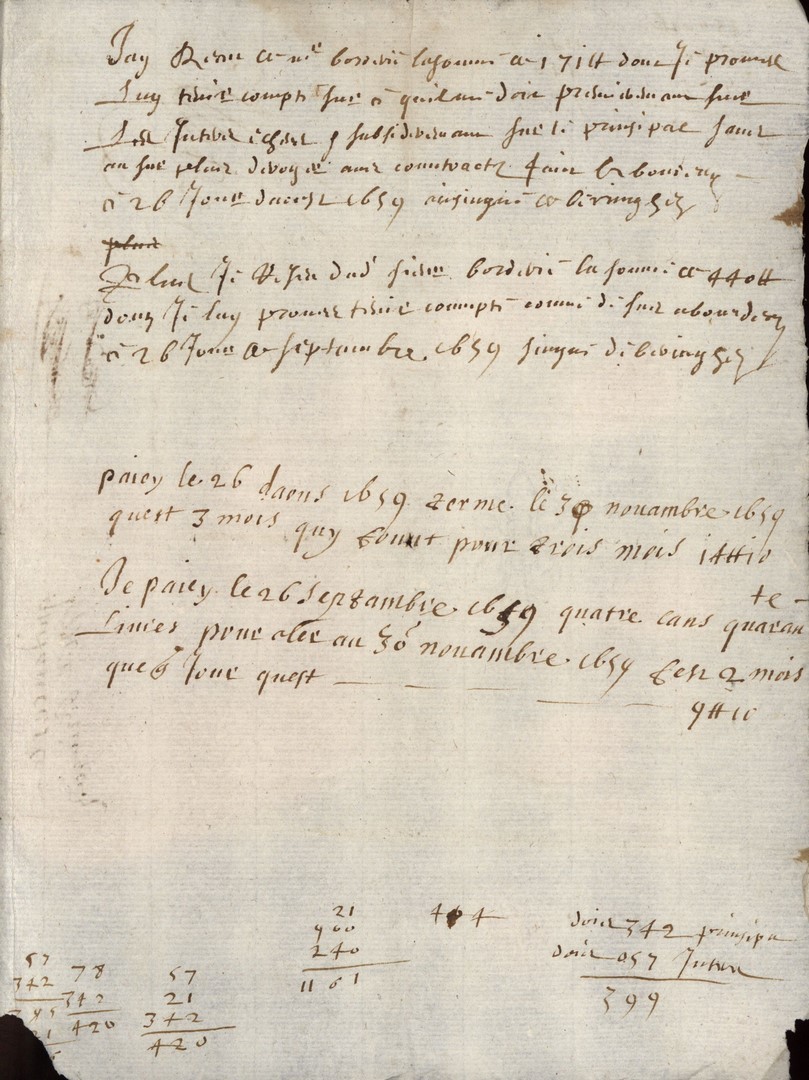 Jay Resu de mr borderie la somme de 171 tt dont Je promes
Luy tenir compte sur quil me doit premieremant sur
Les Interes eches subsidieremant sur le prinsipal sans
au sur plus deroger aux contracts fait a bourdeaux
26 Jour daoust 1659
plus
Plus Je Resu dud sieur borderie la somme de 440 tt
dont Je luy promes tenir compte comme de sus a bourdeaux
26 Jour de septambre 1659
paiey le 26 daous 1659 terme le 30 nouambre 1659
quest 3 mois quy sont pour trois mois 14 tt 10
Je paiey le 26 Septambre 1659 quatre cans quaran te
Liures pour aler au 30 nouambre 1659 sest 2 mois
que 6 Jour quest
9 tt 10
21
900
240
1161
404
doit 342 prinsipa
doit 057 Interes
399
57
342
78
342
420
57
21
342
420